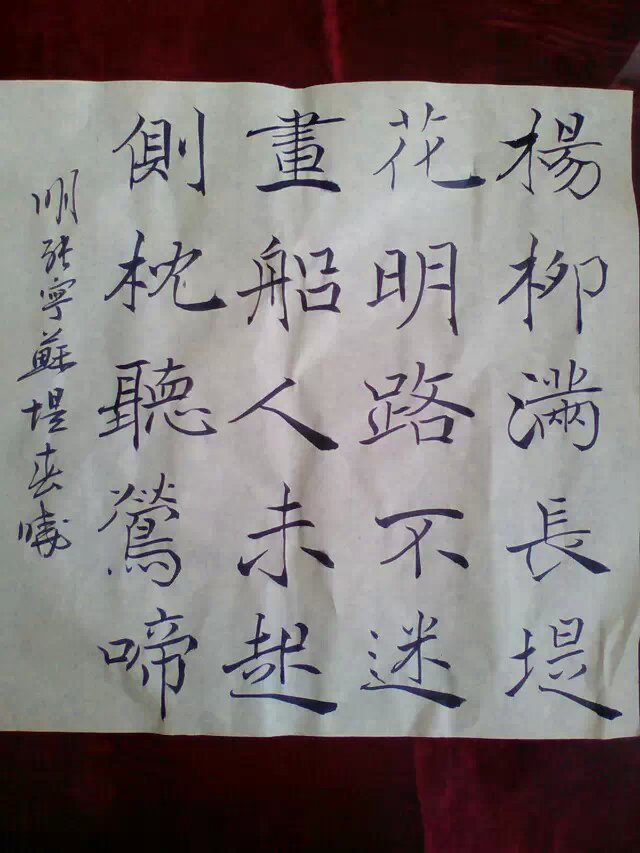 楊柳滿長堤
花明路不迷
畫船人未起
側枕聽鶯啼
明張寧蘇堤春曉